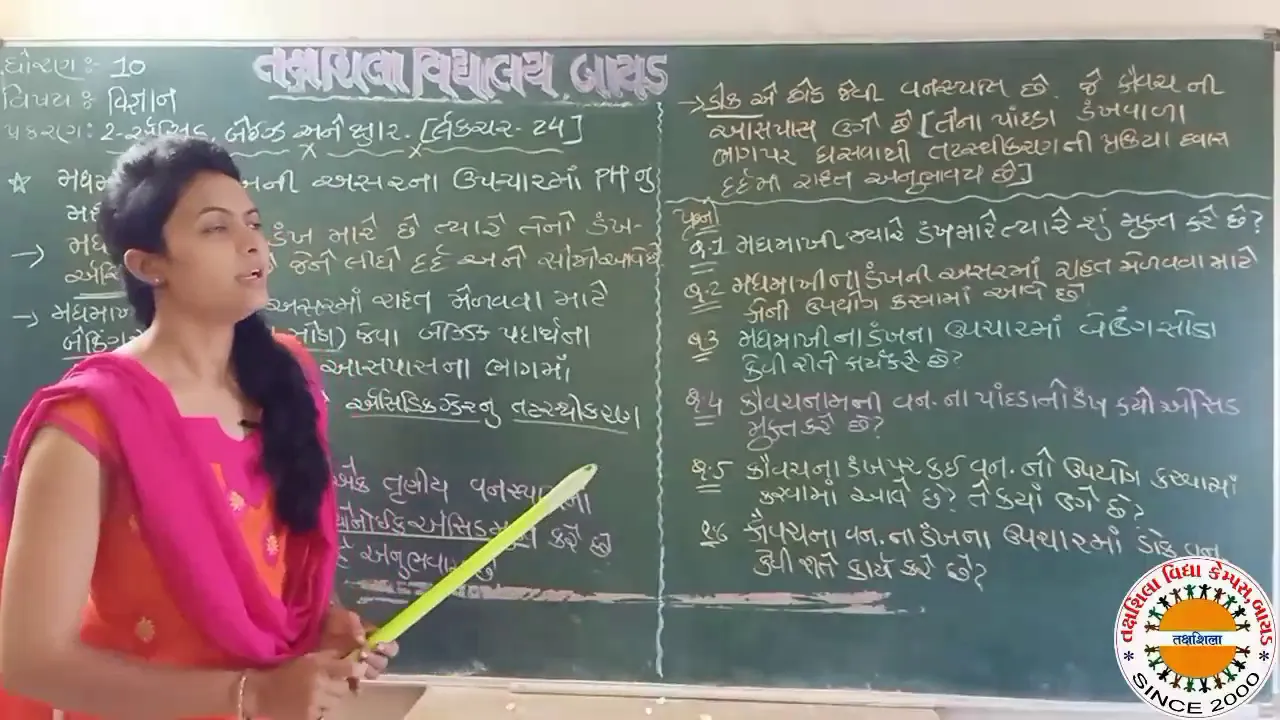 ધોરણ :- 10
વિષય : વિજ્ઞાન
પ્રકરણ : 2-ઍસિડ, બેઈઝ અને ક્ષાર. [લેક્ચર- 24]
તક્ષશિલા વિદ્યાલય બાયડ
ની અસરના ઉપચારમાં PH નુ
ડંખ મારે છે ત્યારે તેનો ડંખ-
જેને લીધે દર્દ અને સોજો આવે છે
અસરમાં રાહત મેળવવા માટે
જેવા બેઝિક પદાર્થના
આસપાસના ભાગમાં
ઍસિડિક ઝેરનુ તટસ્થીકરણ
એક તૃણીય વનસ્પતિના
કરે છે
→ ડોક એ છોડ જેવી વનસ્પતિ છે. જે કૌવચ ની
આસપાસ ઉગે છે [તેના પાંદડા ડંખવાળા
ભાગ પર ઘસવાથી તટસ્થીકરણ ની પ્રક્રિયા દ્વારા
દર્દમાં રાહત અનુભવાય છે]
પ્રશ્નો
પ્ર.1 મધમાખી જ્યારે ડંખ મારે ત્યારે શું મુક્ત કરે છે?
પ્ર.2 મધમાખીના ડંખની અસરમાં રાહત મેળવવા માટે
કોનો ઉપયોગ કરવામાં આવે છે
પ્ર.3 મધમાખી ના ડંખના ઉપચારમાં બેકિંગ સોડા
કેવી રીતે કાર્ય કરે છે?
પ્ર.4 કૌવચ નામની વન. ના પાંદડાનો ડંખ ક્યો ઍસિડ
મુક્ત કરે છે?
પ્ર.5 કૌવચના ડંખ પર કઈ વન. નો ઉપયોગ કરવામાં
કરવામાં આવે છે? તે ક્યાં ઉગે છે?
પ્ર.6 કૌવચના વન. ના ડંખના ઉપચારમાં ડોક વન.
કેવી રીતે કાર્ય કરે છે?
તક્ષશિલા વિદ્યા કેમ્પસ, બાયડ
તક્ષશિલા
* SINCE 2000 *